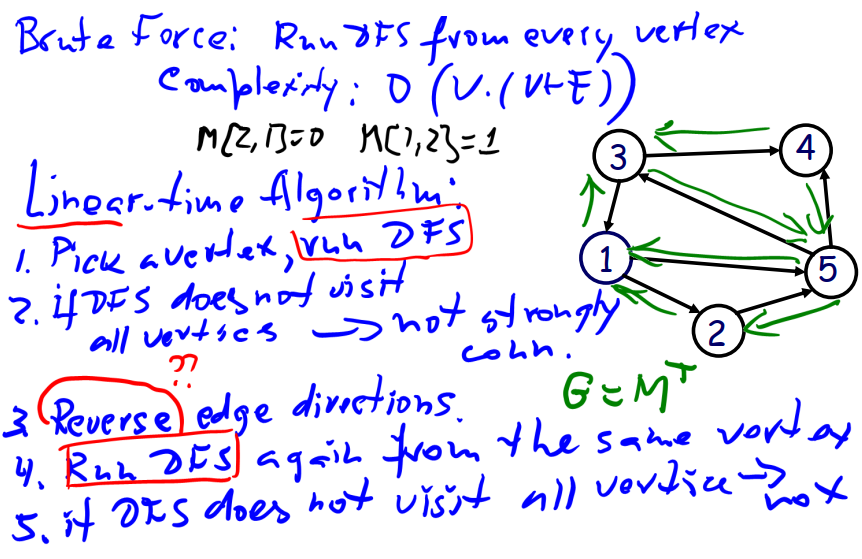 Brute Force: Run DFS from every vertex
Complexity: O (V.(V+E))
M[2,1]=0 M[1,2]=1
Linear-time Algorithm:
1. Pick a vertex, run DFS
2. if DFS does not visit
all vertices → not strongly
conn.
??
3 Reverse edge directions.
4. Run DFS again from the same vertex
5. if DFS does not visit all vertice → not
3
4
1
5
2
G = M^T